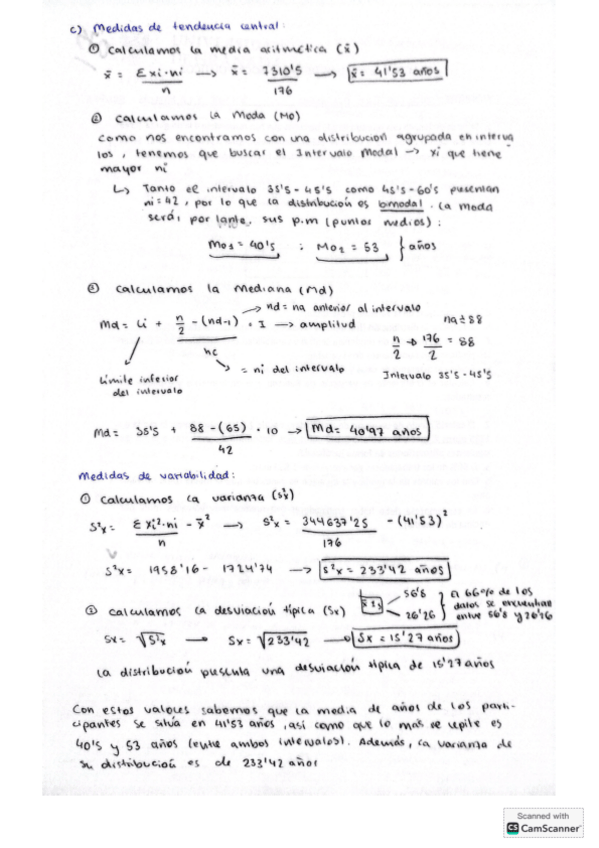 c) Medidas de tendencia central:
① Calculamos la media aritmética (x̄)
x̄ = Σxi·ni / n → x̄ = 7310'5 / 176 → x̄ = 41'53 años
② Calculamos la Moda (Mo)
Como nos encontramos con una distribución agrupada en interva
los, tenemos que buscar el Intervalo Modal → xi que tiene
mayor ni
↳ Tanto el intervalo 35'5 - 45'5 como 45'5 - 60'5 presentan
ni = 42, por lo que la distribución es bimodal. La moda
será, por tanto, sus p.m (puntos medios):
Mo1 = 40'5 ; Mo2 = 53 } años
③ Calculamos la Mediana (Md)
→ nd = na anterior al intervalo
Md = Li + n/2 - (nd-1) / nc · I → amplitud
na ≥ 88
n/2 → 176/2 = 88
= ni del intervalo
Intervalo 35'5 - 45'5
Límite inferior
del intervalo
Md = 35'5 + 88 - (65) / 42 · 10 → Md = 40'97 años
Medidas de variabilidad:
① Calculamos la varianza (S²x)
S²x = Σxi²·ni / n - x̄² → S²x = 344637'25 / 176 - (41'53)²
S²x = 1958'16 - 1724'74 → S²x = 233'42 años
② Calculamos la desviación típica (Sx)
56'8
26'26
El 66% de los
datos se encuentran
entre 56'8 y 26'26
Sx = √S²x → Sx = √233'42 → Sx = 15'27 años
La distribución presenta una desviación típica de 15'27 años
Con estos valores sabemos que la media de años de los parti-
cipantes se sitúa en 41'53 años, así como que lo más se repite es
40'5 y 53 años (entre ambos intervalos). Además, la varianza de
su distribución es de 233'42 años
Scanned with
CS CamScanner